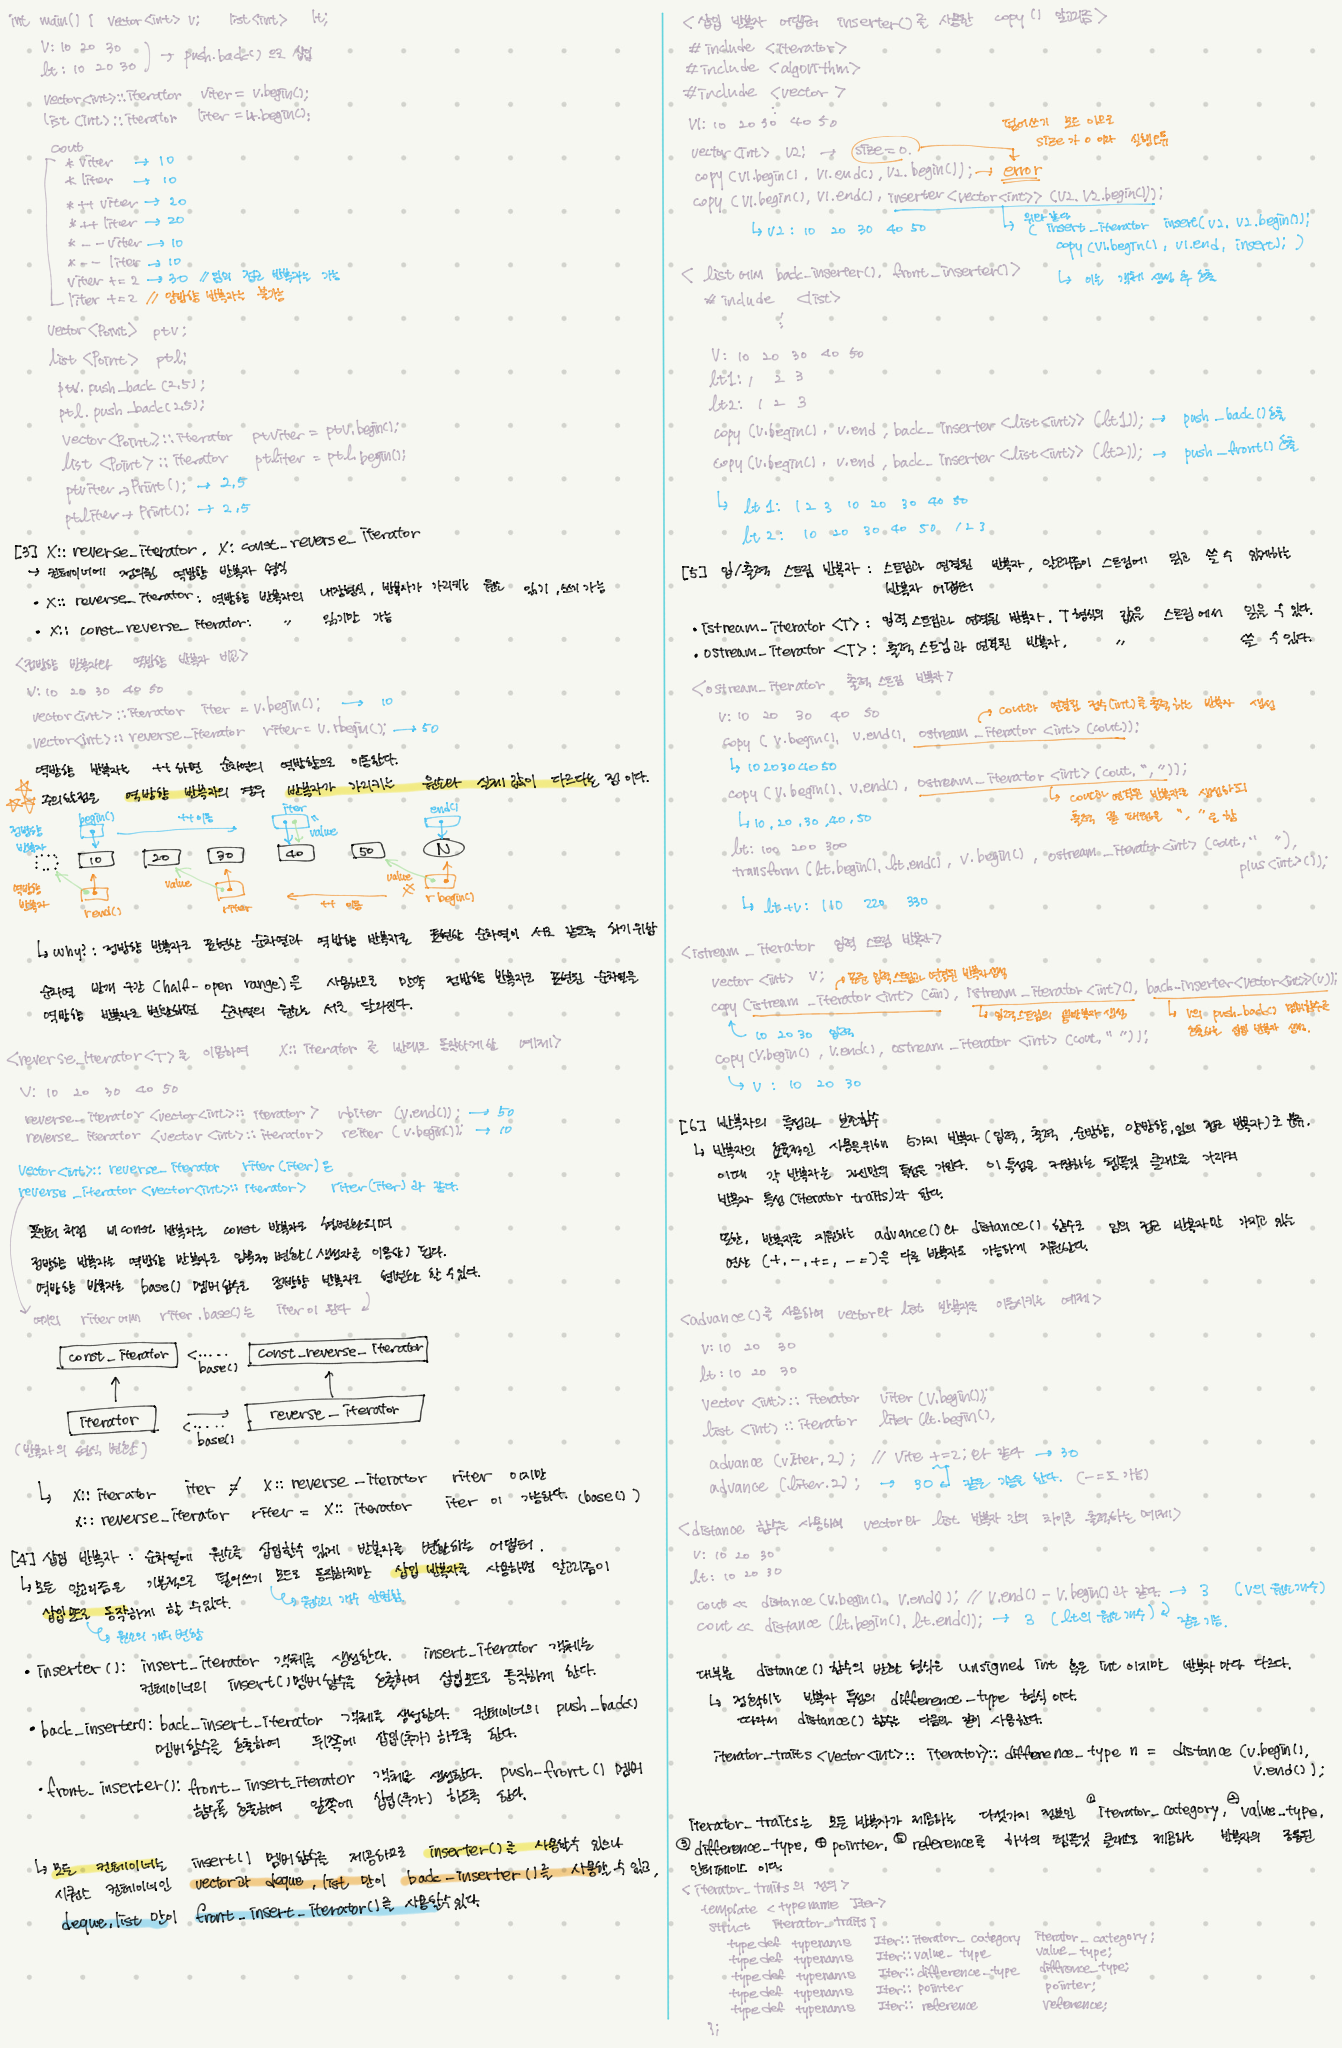 int main() { vector<int> v; list<int> lt;
V: 10 20 30
lt: 10 20 30
→ push.back() 으로 삽입
vector<int>::iterator viter = v.begin();
list<int>::iterator liter = lt.begin();
cout
* viter → 10
* liter → 10
* ++ viter → 20
* ++ liter → 20
* -- viter → 10
* -- liter → 10
viter += 2 → 30 // 임의 접근 반복자는 가능
liter += 2 // 양방향 반복자는 불가능
vector<Point> ptv;
list<Point> ptl;
ptv.push_back(2,5);
ptl.push_back(2,5);
vector<Point>::iterator ptviter = ptv.begin();
list<Point>::iterator ptliter = ptl.begin();
ptviter→Print(); → 2,5
ptliter→Print(); → 2,5
[3] X::reverse_iterator, X: const_reverse_iterator
→ 컨테이너에 정의된 역방향 반복자 형식
• X::reverse_iterator: 역방향 반복자의 내장형식, 반복자가 가리키는 원소 읽기, 쓰기 가능
• X:: const_reverse_iterator: 〃 읽기만 가능
<정방향 반복자와 역방향 반복자 비교>
V: 10 20 30 40 50
vector<int>::iterator iter = v.begin(); → 10
vector<int>::reverse_iterator riter = v.rbegin(); → 50
역방향 반복자는 ++하면 순차열의 역방향으로 이동한다.
주의할점은 역방향 반복자의 경우 반복자가 가리키는 원소와 실제 값이 다르다는 점이다.
정방향 반복자 begin() ++이동 iter value end()
10 20 30 40 50 N
역방향 반복자 rend() value riter ++ 이동 value rbegin()
↳ why?: 정방향 반복자로 표현한 순차열과 역방향 반복자로 표현한 순차열이 서로 같도록 하기위함
순차열 반개 구간(half-open range)은 사용하므로 만약 정방향 반복자로 표현된 순차열을
역방향 반복자로 변환하면 순차열의 원소는 서로 달라진다.
<reverse_iterator<T>를 이용하여 X::iterator 를 반대로 동작하게 한 예제>
V: 10 20 30 40 50
reverse_iterator<vector<int>::iterator> rbiter (v.end()); → 50
reverse_iterator<vector<int>::iterator> reiter (v.begin()); → 10
vector<int>::reverse_iterator riter(iter)는
reverse_iterator<vector<int>::iterator> riter(iter)과 같다.
포인터처럼 비const 반복자는 const 반복자로 형변환되며
정방향 반복자는 역방향 반복자로 암묵적 변환(생성자를 이용한) 된다.
역방향 반복자는 base() 멤버 함수로 정방향 반복자로 형변환 할 수있다.
예의 riter에서 riter.base()는 iter이 된다
const_iterator <..... base() const_reverse_iterator
iterator <..... base() reverse_iterator
(반복자의 형식 변환)
↳ X::iterator iter ≠ X::reverse_iterator riter 이지만
X::reverse_iterator riter = X::iterator iter 이 가능하다. (base())
[4] 삽입 반복자: 순차열에 원소를 삽입할수 있게 반복자를 변환하는 어댑터.
↳ 모든 알고리즘은 기본적으로 덮어쓰기 모드로 동작하지만 삽입 반복자를 사용하면 알고리즘이
삽입모드로 동작하게 할 수있다.
↳ 원소의 개수 안변함
↳ 원소의 개수 변함
• inserter(): insert_iterator 객체를 생성한다. insert_iterator 객체는
컨테이너의 insert() 멤버함수를 호출하여 삽입모드로 동작하게 한다.
• back_inserter(): back_insert_iterator 객체를 생성한다. 컨테이너의 push_back()
멤버함수를 호출하여 뒤쪽에 삽입(추가)하도록 한다.
• front_inserter(): front_insert_iterator 객체를 생성한다. push-front() 멤버
함수를 호출하여 앞쪽에 삽입(추가) 하도록 한다.
↳ 모든 컨테이너는 insert() 멤버함수를 제공하므로 inserter()를 사용할수 있으나
시퀀스 컨테이너인 vector과 deque, list 만이 back_inserter()를 사용할 수 있고,
deque, list 만이 front_insert_iterator()를 사용할수있다.
<삽입 반복자 어댑터 inserter()를 사용한 copy() 알고리즘>
#include <iterator>
#include <algorithm>
#include <vector>
V1: 10 20 30 40 50
vector<int> v2; → size=0.
덮어쓰기 모드 이므로
size가 0 이라 실행오류
copy(v1.begin(), v1.end(), v2.begin()); → error
copy(v1.begin(), v1.end(), inserter<vector<int>>(v2, v2.begin()));
↳ v2: 10 20 30 40 50
↳ 위와 같다
( insert_iterator insert(v2, v2.begin());
copy(v1.begin(), v1.end, insert); )
↳ 이는 객체 생성 후 호출
<list에서 back_inserter(), front_inserter()>
#include <list>
V: 10 20 30 40 50
lt1: 1 2 3
lt2: 1 2 3
copy(v.begin(), v.end, back_inserter<list<int>>(lt1)); → push_back() 호출
copy(v.begin(), v.end, back_inserter<list<int>>(lt2)); → push_front() 호출
↳ lt1: 1 2 3 10 20 30 40 50
lt2: 10 20 30 40 50 1 2 3
[5] 입/출력 스트림 반복자: 스트림과 연결된 반복자, 알고리즘이 스트림에 읽고 쓸 수 있게하는
반복자 어댑터
• istream_iterator<T>: 입력 스트림과 연결된 반복자, T형식의 값을 스트림에서 읽을 수 있다.
• ostream_iterator<T>: 출력 스트림과 연결된 반복자, 〃 쓸 수 있다.
<ostream_iterator 출력 스트림 반복자>
V: 10 20 30 40 50
→ cout과 연결된 정수(int)를 출력하는 반복자 생성
copy(v.begin(), v.end(), ostream_iterator<int>(cout));
↳ 1020304050
copy(v.begin(), v.end(), ostream_iterator<int>(cout, ","));
↳ cout과 연결된 반복자로 생성하되
출력 패턴은 "," 로 함
↳ 10,20,30,40,50
lt: 100 200 300
transform(lt.begin(), lt.end(), v.begin(), ostream_iterator<int>(cout," "),
plus<int>());
↳ lt+v: 110 220 330
<istream_iterator 입력 스트림 반복자>
vector<int> v;
→ 표준 입력스트림과 연결된 반복자생성
copy(istream_iterator<int>(cin), istream_iterator<int>(), back_inserter<vector<int>>(v));
↳ 입력스트림의 끝반복자 생성
↳ v의 push_back() 멤버함수를
호출하는 삽입 반복자 생성.
10 20 30 입력
copy(v.begin(), v.end(), ostream_iterator<int>(cout," "));
↳ V: 10 20 30
[6] 반복자의 특성과 보조함수
↳ 반복자의 효율적인 사용을위해 5가지 반복자(입력, 출력, 순방향, 양방향, 임의 접근 반복자)로 분류.
이때 각 반복자는 자신만의 특성을 가진다. 이 특성을 저장하는 템플릿 클래스를 가리켜
반복자 특성(iterator traits)라 한다.
또한, 반복자를 지원하는 advance()와 distance() 함수로 임의 접근 반복자만 가지고 있는
연산 (+, -, +=, -=)을 다른 반복자도 가능하게 지원한다.
<advance()를 사용하여 vector와 list 반복자를 이동시키는 예제>
V: 10 20 30
lt: 10 20 30
vector<int>::iterator viter(v.begin());
list<int>::iterator liter(lt.begin(),
advance(viter, 2); // vite +=2; 와 같다 → 30
advance(liter, 2); → 30 같은 기능을 한다. (-=도 가능)
<distance 함수를 사용하여 vector와 list 반복자 간의 차이를 출력하는 예제>
V: 10 20 30
lt: 10 20 30
cout << distance(v.begin(), v.end()); // v.end() - v.begin()과 같다. → 3 (v의 원소개수)
cout << distance(lt.begin(), lt.end()); → 3 (lt의 원소 개수) 같은 기능.
대부분 distance() 함수의 반환 형식은 unsigned int 혹은 int 이지만 반복자 마다 다르다.
↳ 정확히는 반복자 특성의 difference_type 형식 이다.
따라서 distance() 함수는 다음과 같이 사용한다.
iterator_traits<vector<int>::iterator>::difference_type n = distance(v.begin(),
v.end());
iterator_traits는 모든 반복자가 제공하는 다섯가지 정보인 ① iterator_category, ② value_type,
③ difference_type, ④ pointer, ⑤ reference를 하나의 템플릿 클래스로 제공하는 반복자의 공통된
인터페이스 이다.
<iterator_traits의 정의>
template <typename Iter>
struct iterator_traits {
typedef typename Iter::iterator_category iterator_category;
typedef typename Iter::value_type value_type;
typedef typename Iter::difference_type difference_type;
typedef typename Iter::pointer pointer;
typedef typename Iter::reference reference;
};